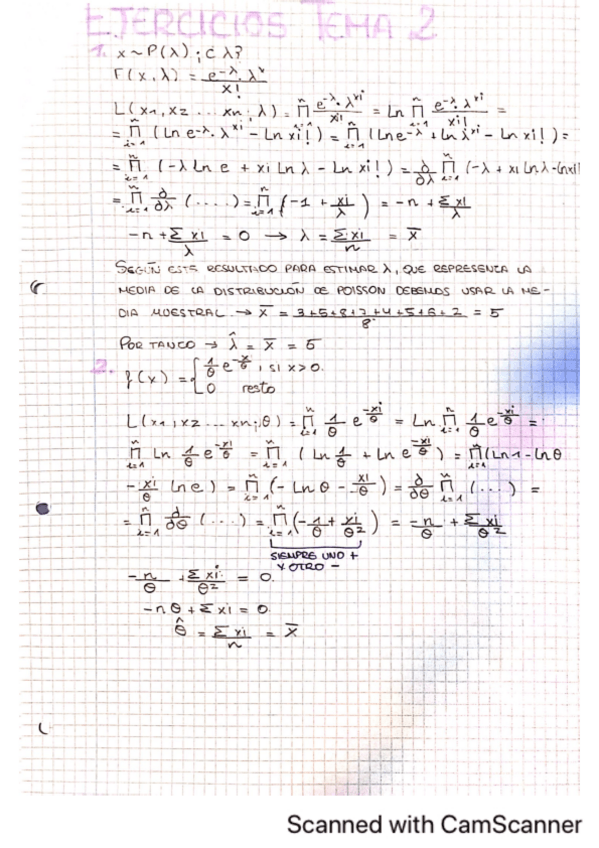 EJERCICIOS TEMA 2
1. x ~ P(λ) ; ¿ λ?
F(x, λ) = e^-λ · λ^x / x!
L(x1, x2 ... xn ; λ) = ∏ e^-λ · λ^xi / xi! = Ln ∏ e^-λ · λ^xi / xi! =
= ∏ (Ln e^-λ · λ^xi - Ln xi!) = ∏ (Ln e^-λ + Ln λ^xi - Ln xi!) =
= ∏ (-λ Ln e + xi Ln λ - Ln xi!) = ∂/∂λ ∏ (-λ + xi Ln λ - Ln xi!)
= ∏ ∂/∂λ (....) = ∏ (-1 + xi/λ) = -n + Σ xi/λ
-n + Σ xi/λ = 0 → λ = Σ xi/n = x̄
SEGÚN ESTE RESULTADO PARA ESTIMAR λ, QUE REPRESENTA LA
MEDIA DE LA DISTRIBUCIÓN DE POISSON DEBEMOS USAR LA ME-
DIA MUESTRAL → x̄ = 3+5+8+7+4+5+6+2 / 8 = 5
POR TANTO → λ̂ = x̄ = 5
2. f(x) = { 1/θ e^-x/θ , si x>0.
0 resto
L(x1, x2 ... xn ; θ) = ∏ 1/θ e^-xi/θ = Ln ∏ 1/θ e^-xi/θ =
∏ Ln 1/θ e^-xi/θ = ∏ (Ln 1/θ + Ln e^-xi/θ) = ∏ (Ln 1 - Ln θ
- xi/θ Ln e) = ∏ (- Ln θ - xi/θ) = ∂/∂θ ∏ (...) =
= ∏ ∂/∂θ (....) = ∏ (-1/θ + xi/θ²) = -n/θ + Σ xi/θ²
SIEMPRE UNO +
Y OTRO -
-n/θ + Σ xi/θ² = 0
-nθ + Σ xi = 0
θ̂ = Σ xi/n = x̄
Scanned with CamScanner